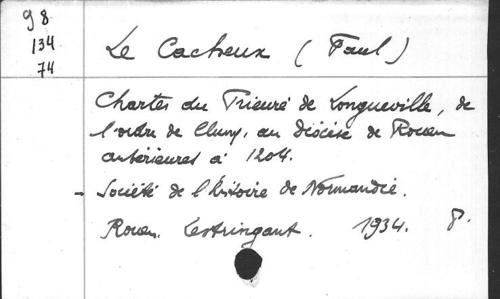 98
134
74
Le Cacheux (Paul)
Chartes du Prieuré de Longueville, de
l'ordre de Cluny, au diocèse de Rouen
antérieures à 1204.
- Société de l'histoire de Normandie.
Rouen. Lestringant. 1934. 8°.